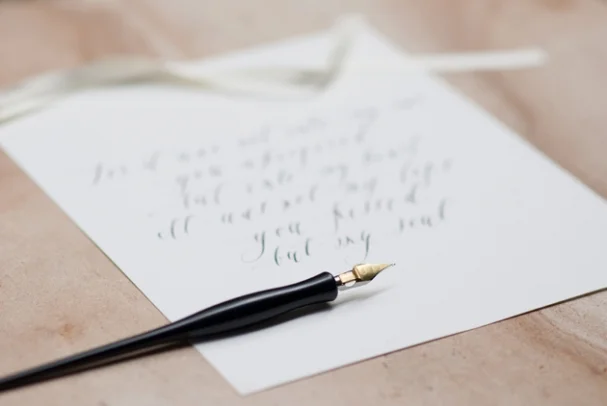 for it was not into my ear
you whispered
but into my heart
it was not my lips
you kissed
but my soul